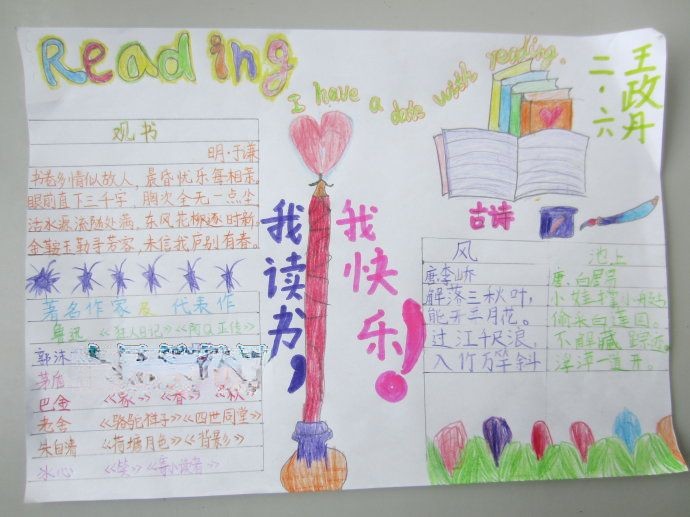 Reading
I have a date with reading.
王政丹
二·六
观书
明·于谦
书卷多情似故人，晨昏忧乐每相亲。
眼前直下三千字，胸次全无一点尘
活水源流随处满，东风花柳逐时新。
金鞍玉勒寻芳客，未信我庐别有春。
著名作家及代表作
鲁迅《狂人日记》《阿Q正传》
郭沫
茅盾
巴金《家》《春》《秋》
老舍《骆驼祥子》《四世同堂》
朱自清《荷塘月色》《背影》
冰心《笑》《寄小读者》
我读书，
我快乐！
古诗
风
唐李峤
解落三秋叶，
能开二月花。
过江千尺浪，
入竹万竿斜
池上
唐·白居易
小娃撑小舟
偷采白莲回。
不解藏踪迹
浮萍一道开。